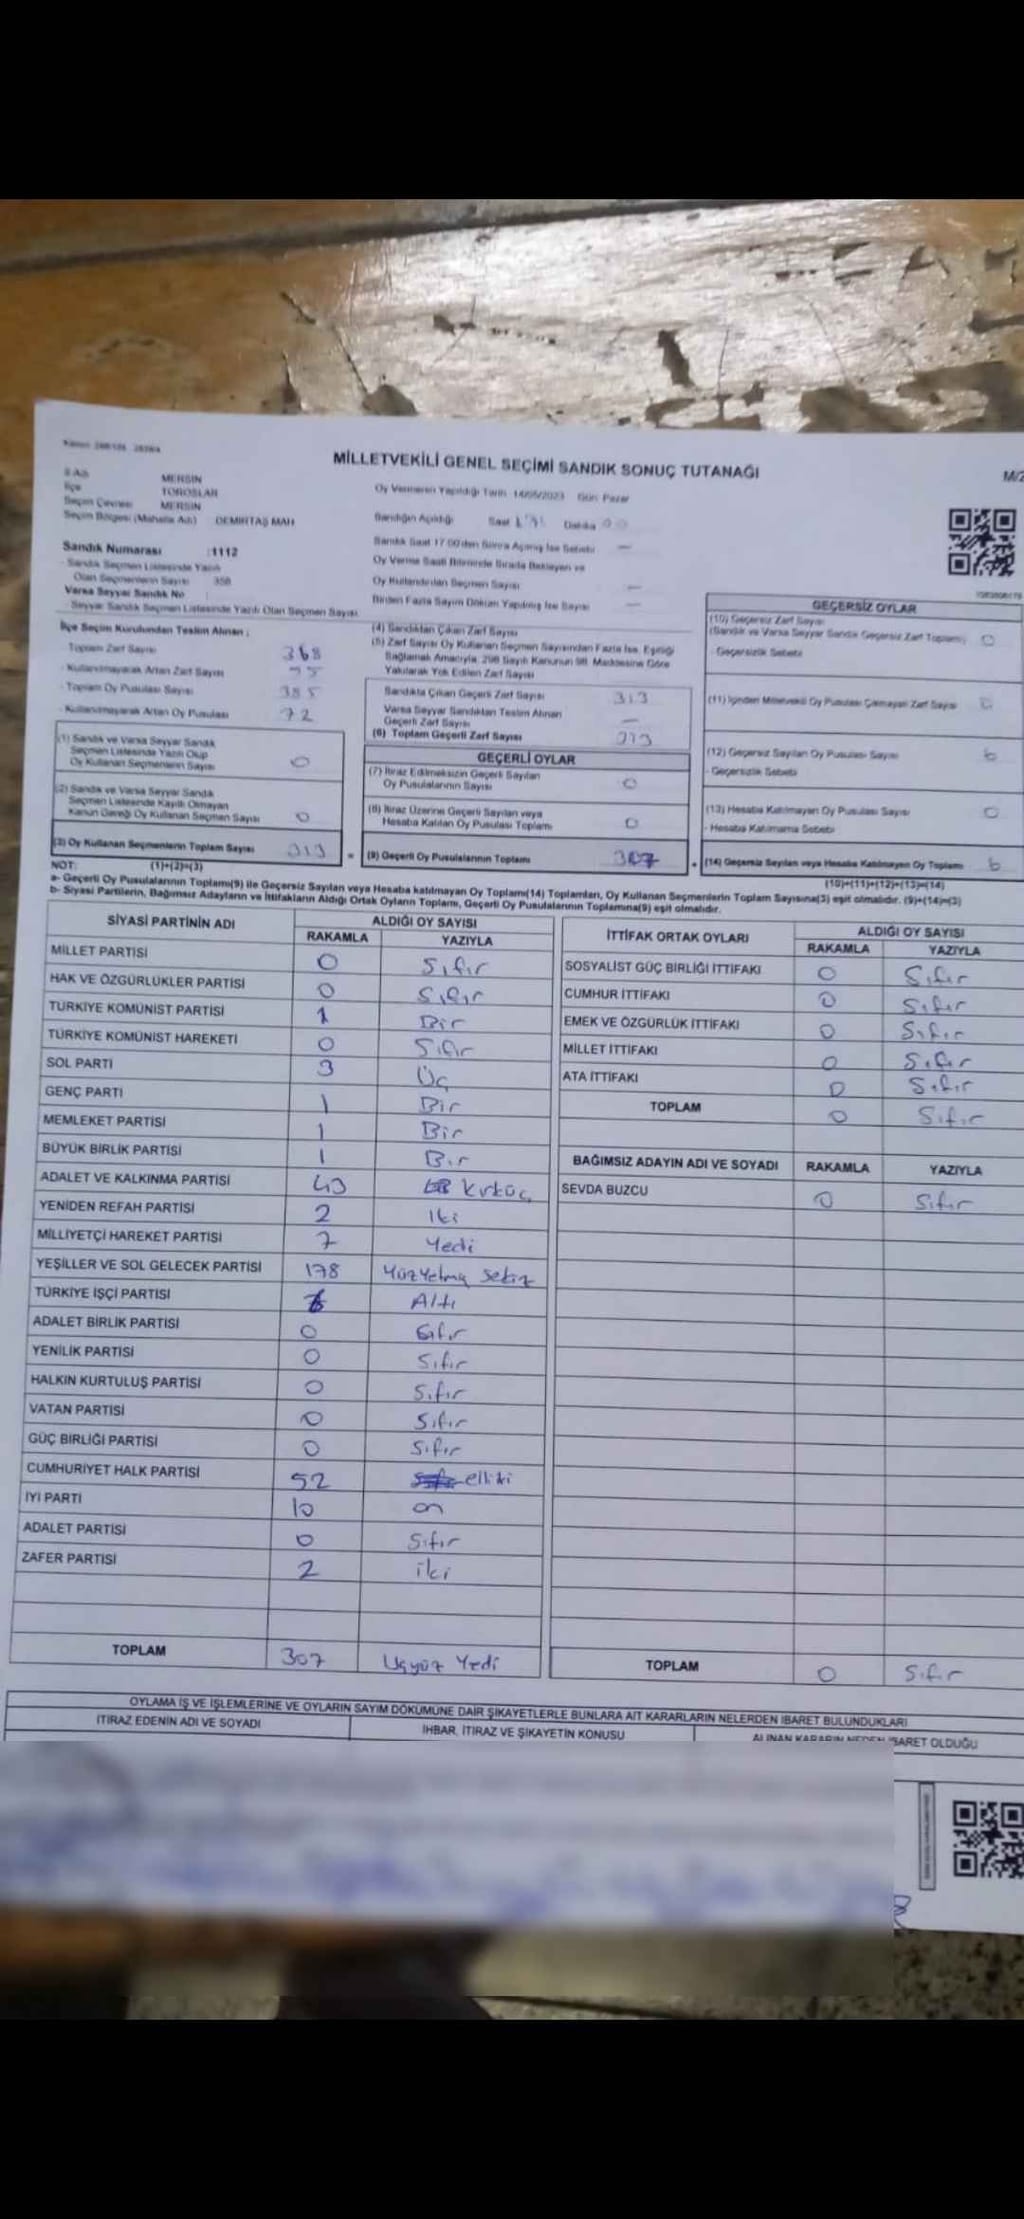 MİLLETVEKİLİ GENEL SEÇİMİ SANDIK SONUÇ TUTANAĞI
M/2
İl Adı MERSİN
İlçe TOROSLAR
Seçim Çevresi MERSİN
Seçim Bölgesi (Mahalle Adı) DEMİRTAŞ MAH
Oy Vermenin Yapıldığı Tarih 14/05/2023 Gün: Pazar
Sandığın Açıldığı Saat Dakika
Sandık Saat 17:00'den Sonra Açılmış İse Sebebi —
Oy Verme Saati Bitiminde Sırada Bekleyen ve
Oy Kullandırılan Seçmen Sayısı —
Birden Fazla Sayım Döküm Yapılmış İse Sayısı —
Sandık Numarası :1112
- Sandık Seçmen Listesinde Yazılı
Olan Seçmenlerin Sayısı 358
Varsa Seyyar Sandık No :
- Seyyar Sandık Seçmen Listesinde Yazılı Olan Seçmen Sayısı
İlçe Seçim Kurulundan Teslim Alınan ;
- Toplam Zarf Sayısı 368
- Kullanılmayarak Artan Zarf Sayısı 55
- Toplam Oy Pusulası Sayısı 385
- Kullanılmayarak Artan Oy Pusulası 72
(1) Sandık ve Varsa Seyyar Sandık
Seçmen Listesinde Yazılı Olup
Oy Kullanan Seçmenlerin Sayısı 0
(2) Sandık ve Varsa Seyyar Sandık
Seçmen Listesinde Kayıtlı Olmayan
Kanun Gereği Oy Kullanan Seçmen Sayısı 0
(3) Oy Kullanan Seçmenlerin Toplam Sayısı 313
(4) Sandıktan Çıkan Zarf Sayısı
(5) Zarf Sayısı Oy Kullanan Seçmen Sayısından Fazla İse, Eşitliği
Sağlamak Amacıyla, 298 Sayılı Kanunun 98. Maddesine Göre
Yakılarak Yok Edilen Zarf Sayısı
Sandıkta Çıkan Geçerli Zarf Sayısı 313
Varsa Seyyar Sandıktan Teslim Alınan
Geçerli Zarf Sayısı —
(6) Toplam Geçerli Zarf Sayısı 313
GEÇERLİ OYLAR
(7) İtiraz Edilmeksizin Geçerli Sayılan
Oy Pusulalarının Sayısı 0
(8) İtiraz Üzerine Geçerli Sayılan veya
Hesaba Katılan Oy Pusulası Toplamı 0
= (9) Geçerli Oy Pusulalarının Toplamı 307
GEÇERSİZ OYLAR
(10) Geçersiz Zarf Sayısı
(Sandık ve Varsa Seyyar Sandık Geçersiz Zarf Toplamı) 0
- Geçersizlik Sebebi
(11) İçinden Milletvekili Oy Pusulası Çıkmayan Zarf Sayısı
(12) Geçersiz Sayılan Oy Pusulası Sayısı 6
- Geçersizlik Sebebi
(13) Hesaba Katılmayan Oy Pusulası Sayısı 0
- Hesaba Katılmama Sebebi
+ (14) Geçersiz Sayılan veya Hesaba Katılmayan Oy Toplamı 6
NOT: (1)+(2)=(3)
(10)+(11)+(12)+(13)=(14)
a- Geçerli Oy Pusulalarının Toplamı(9) ile Geçersiz Sayılan veya Hesaba katılmayan Oy Toplamı(14) Toplamları, Oy Kullanan Seçmenlerin Toplam Sayısına(3) eşit olmalıdır. (9)+(14)=(3)
b- Siyasi Partilerin, Bağımsız Adayların ve İttifakların Aldığı Ortak Oyların Toplamı, Geçerli Oy Pusulalarının Toplamına(9) eşit olmalıdır.
SİYASİ PARTİNİN ADI ALDIĞI OY SAYISI
RAKAMLA YAZIYLA
MİLLET PARTİSİ 0 Sıfır
HAK VE ÖZGÜRLÜKLER PARTİSİ 0 Sıfır
TÜRKİYE KOMÜNİST PARTİSİ 1 Bir
TÜRKİYE KOMÜNİST HAREKETİ 0 Sıfır
SOL PARTİ 3 Üç
GENÇ PARTİ 1 Bir
MEMLEKET PARTİSİ 1 Bir
BÜYÜK BİRLİK PARTİSİ 1 Bir
ADALET VE KALKINMA PARTİSİ 43 kırküç
YENİDEN REFAH PARTİSİ 2 İki
MİLLİYETÇİ HAREKET PARTİSİ 7 Yedi
YEŞİLLER VE SOL GELECEK PARTİSİ 178 Yüzyetmiş sekiz
TÜRKİYE İŞÇİ PARTİSİ 6 Altı
ADALET BİRLİK PARTİSİ 0 Sıfır
YENİLİK PARTİSİ 0 Sıfır
HALKIN KURTULUŞ PARTİSİ 0 Sıfır
VATAN PARTİSİ 0 Sıfır
GÜÇ BİRLİĞİ PARTİSİ 0 Sıfır
CUMHURİYET HALK PARTİSİ 52 elliki
İYİ PARTİ 10 on
ADALET PARTİSİ 0 Sıfır
ZAFER PARTİSİ 2 iki
TOPLAM 307 Üçyüz Yedi
İTTİFAK ORTAK OYLARI ALDIĞI OY SAYISI
RAKAMLA YAZIYLA
SOSYALİST GÜÇ BİRLİĞİ İTTİFAKI 0 Sıfır
CUMHUR İTTİFAKI 0 Sıfır
EMEK VE ÖZGÜRLÜK İTTİFAKI 0 Sıfır
MİLLET İTTİFAKI 0 Sıfır
ATA İTTİFAKI 0 Sıfır
TOPLAM 0 Sıfır
BAĞIMSIZ ADAYIN ADI VE SOYADI RAKAMLA YAZIYLA
SEVDA BUZCU 0 Sıfır
TOPLAM 0 Sıfır
OYLAMA İŞ VE İŞLEMLERİNE VE OYLARIN SAYIM DÖKÜMÜNE DAİR ŞİKAYETLERLE BUNLARA AİT KARARLARIN NELERDEN İBARET BULUNDUKLARI
İTİRAZ EDENİN ADI VE SOYADI
İHBAR, İTİRAZ VE ŞİKAYETİN KONUSU
ALINAN KARARIN NEDEN İBARET OLDUĞU